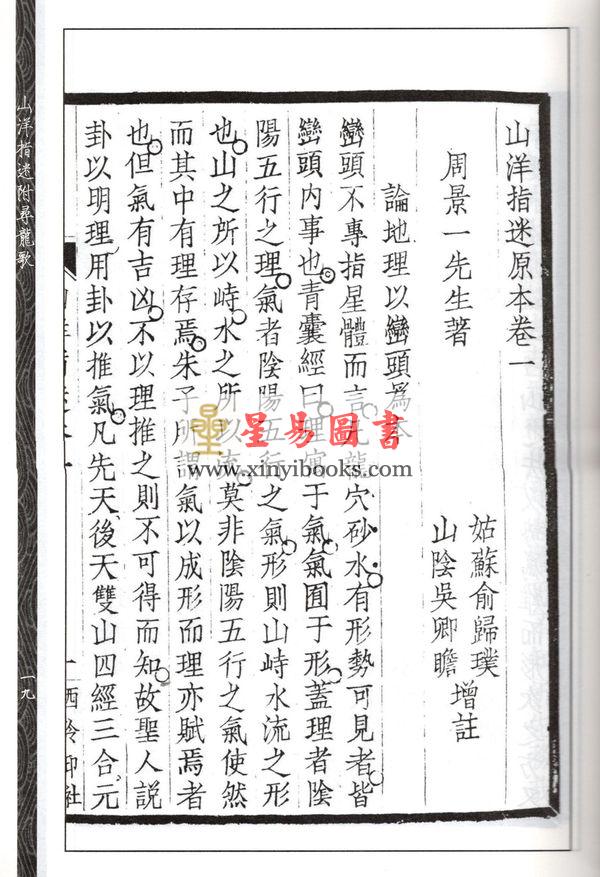 山洋指迷原本卷一
周景一先生著
姑蘇俞歸璞
山陰吳卿瞻
增註
論地理以巒頭爲本
巒頭不專指星體而言凡龍穴砂水有形勢可見者皆
巒頭內事也青囊經曰理寓于氣氣囿于形蓋理者陰
陽五行之理氣者陰陽五行之氣形則山峙水流之形
也山之所以峙水之所以流莫非陰陽五行之氣使然
而其中有理存焉朱子所謂氣以成形而理亦賦焉者
也但氣有吉凶不以理推之則不可得而知故聖人說
卦以明理用卦以推氣凡先天後天雙山四經三合元
一
西泠印社
山洋指迷附尋龍歌
一九
星易圖書
www.xinyibooks.com